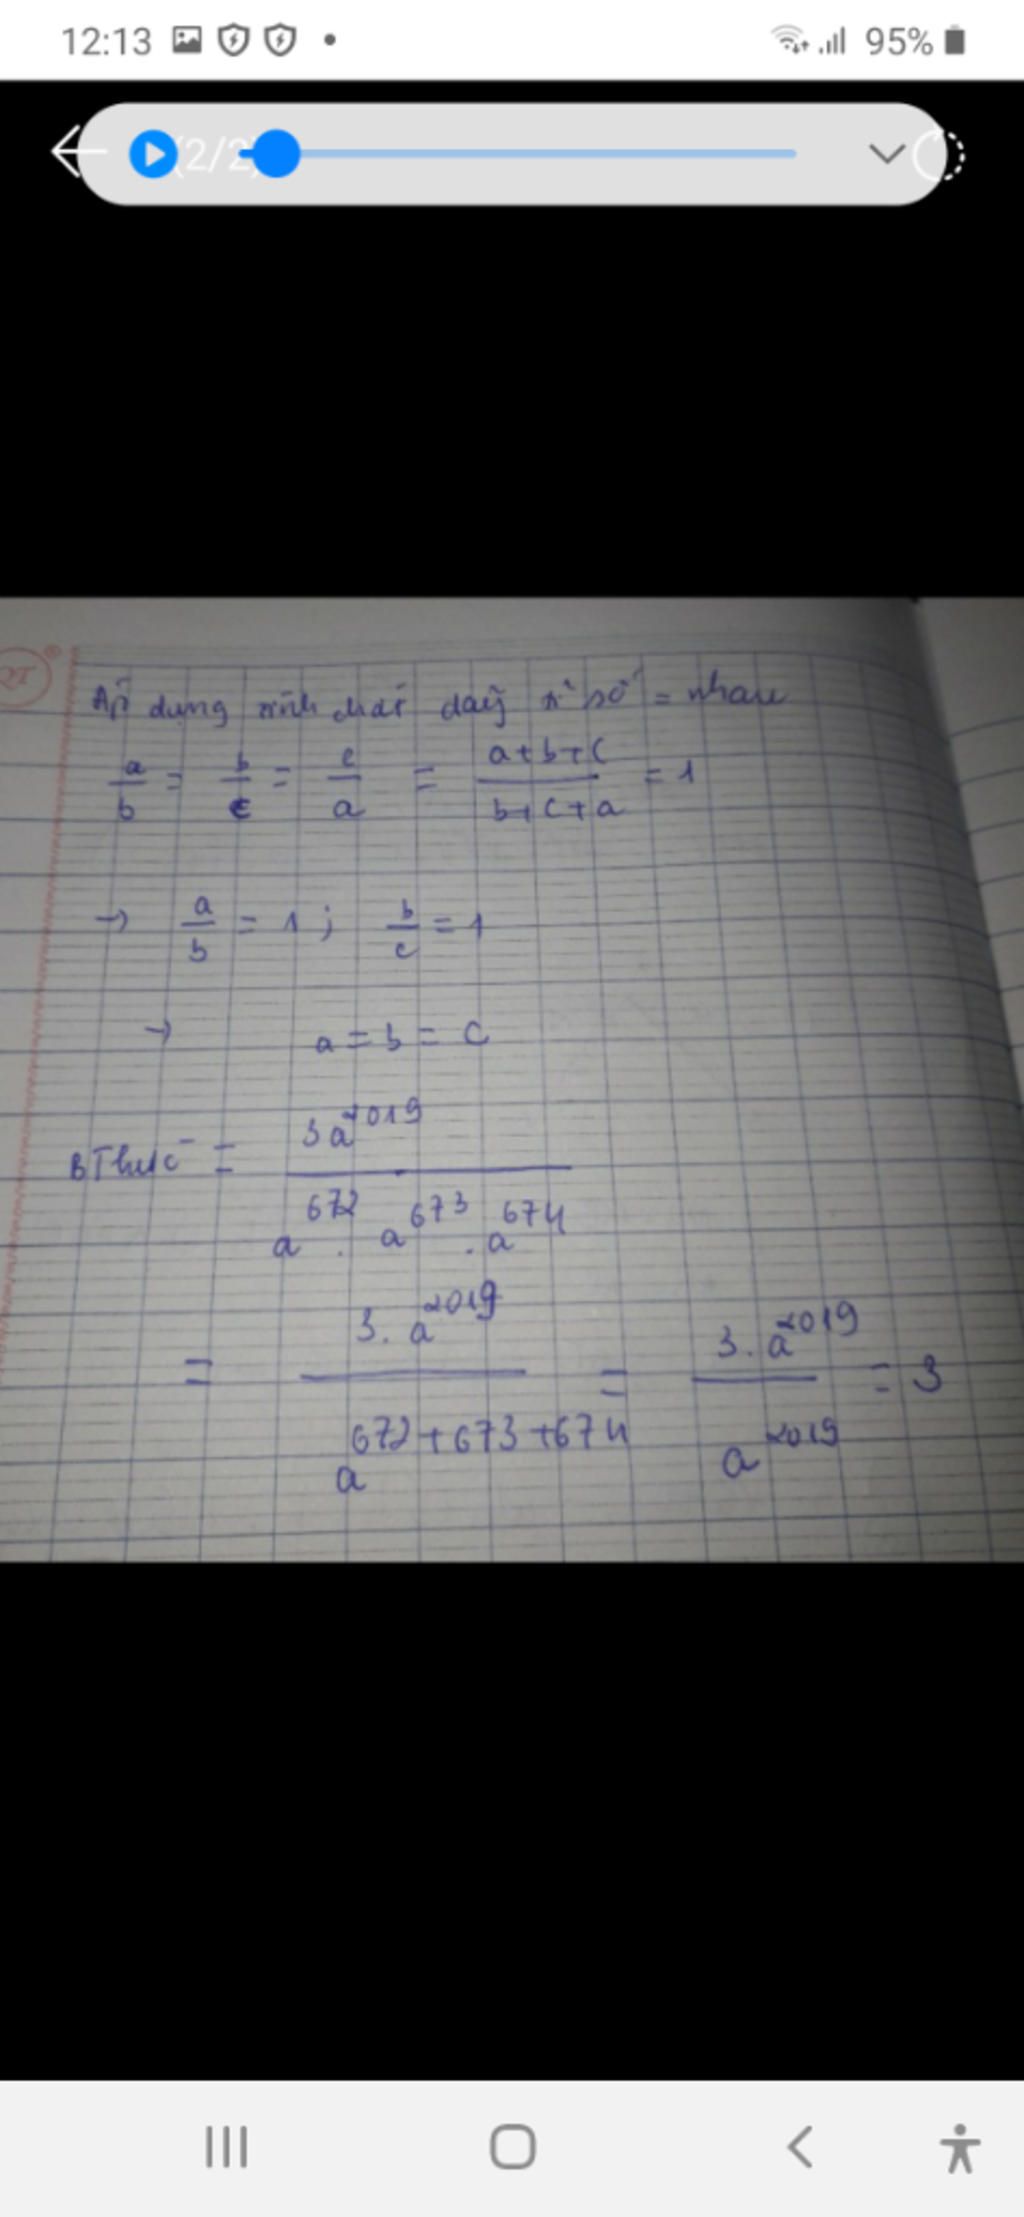 12:13 95%
(2/2)
Áp dụng tính chất dãy tỉ số = nhau
a/b = b/c = c/a = a+b+c/b+c+a = 1
→ a/b = 1 ; b/c = 1
→ a = b = c
BThức = 3a^2019/a^672 . a^673 . a^674
= 3. a^2019/a^672+673+674 = 3. a^2019/a^2019 = 3